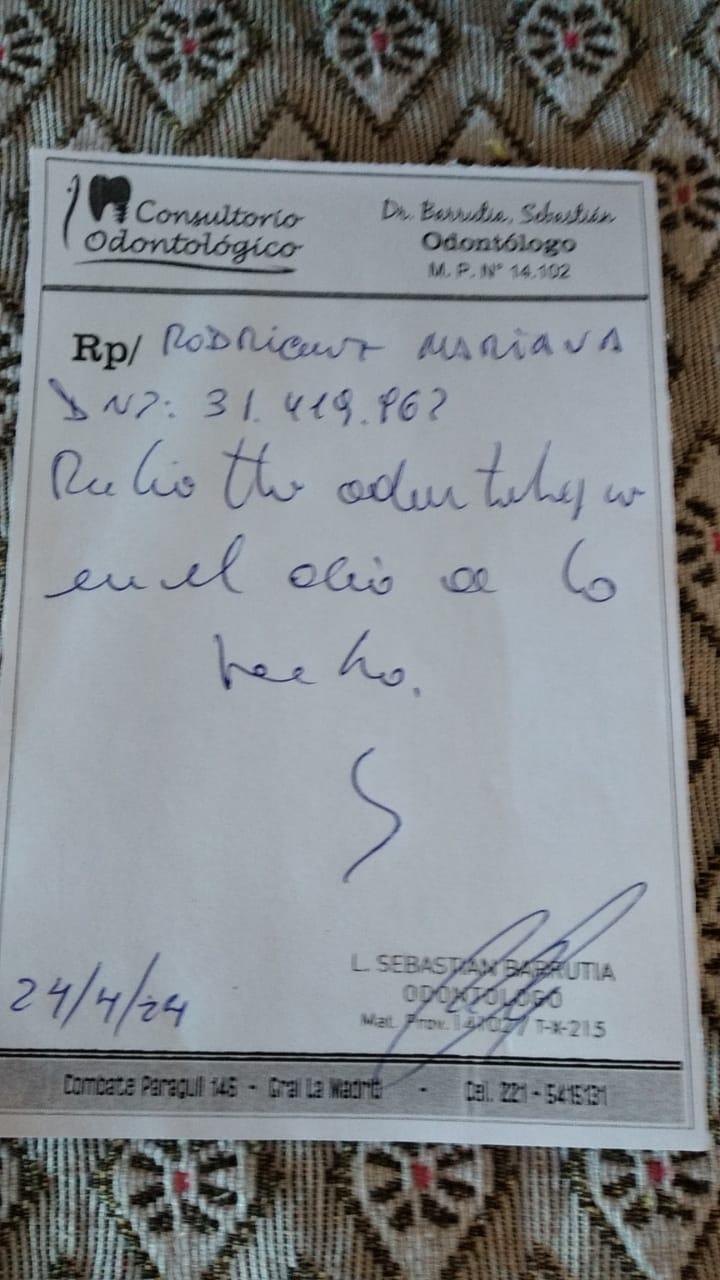 Consultorio
Odontológico
Dr. Barrutia, Sebastián
Odontólogo
M. P. N° 14.102
Rp/ RODRIGUEZ MARIANA
DNI: 31.419.
Recibio tto odontologico
en el dia de la
fecha.
24/4/24
L. SEBASTIAN BARRUTIA
ODONTOLOGO
Mat. Prov. 14102 / T-X-215
Combate Paraguil 145 - Gral La Madrid - Cel. 221 - 5415131